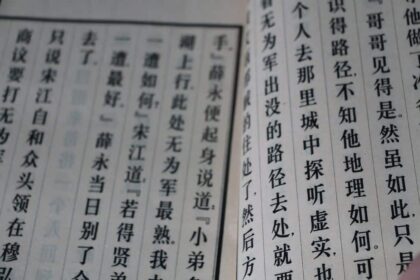 他做了
『哥哥见得是。然虽如此,只
识得路径,不知他地理如何。可
个人去那里城中探听虚实,也
看无为军出没的路径去处,就要
贼的住处了,然后方
手。』薛永便起身说道:『小弟
湖上行,此处无为军最熟,我
一遭如何?』宋江道:『若得贤弟
一遭,最好。』薛永当日别了
去了。
只说宋江自和众头领在穆
商议要打无为军